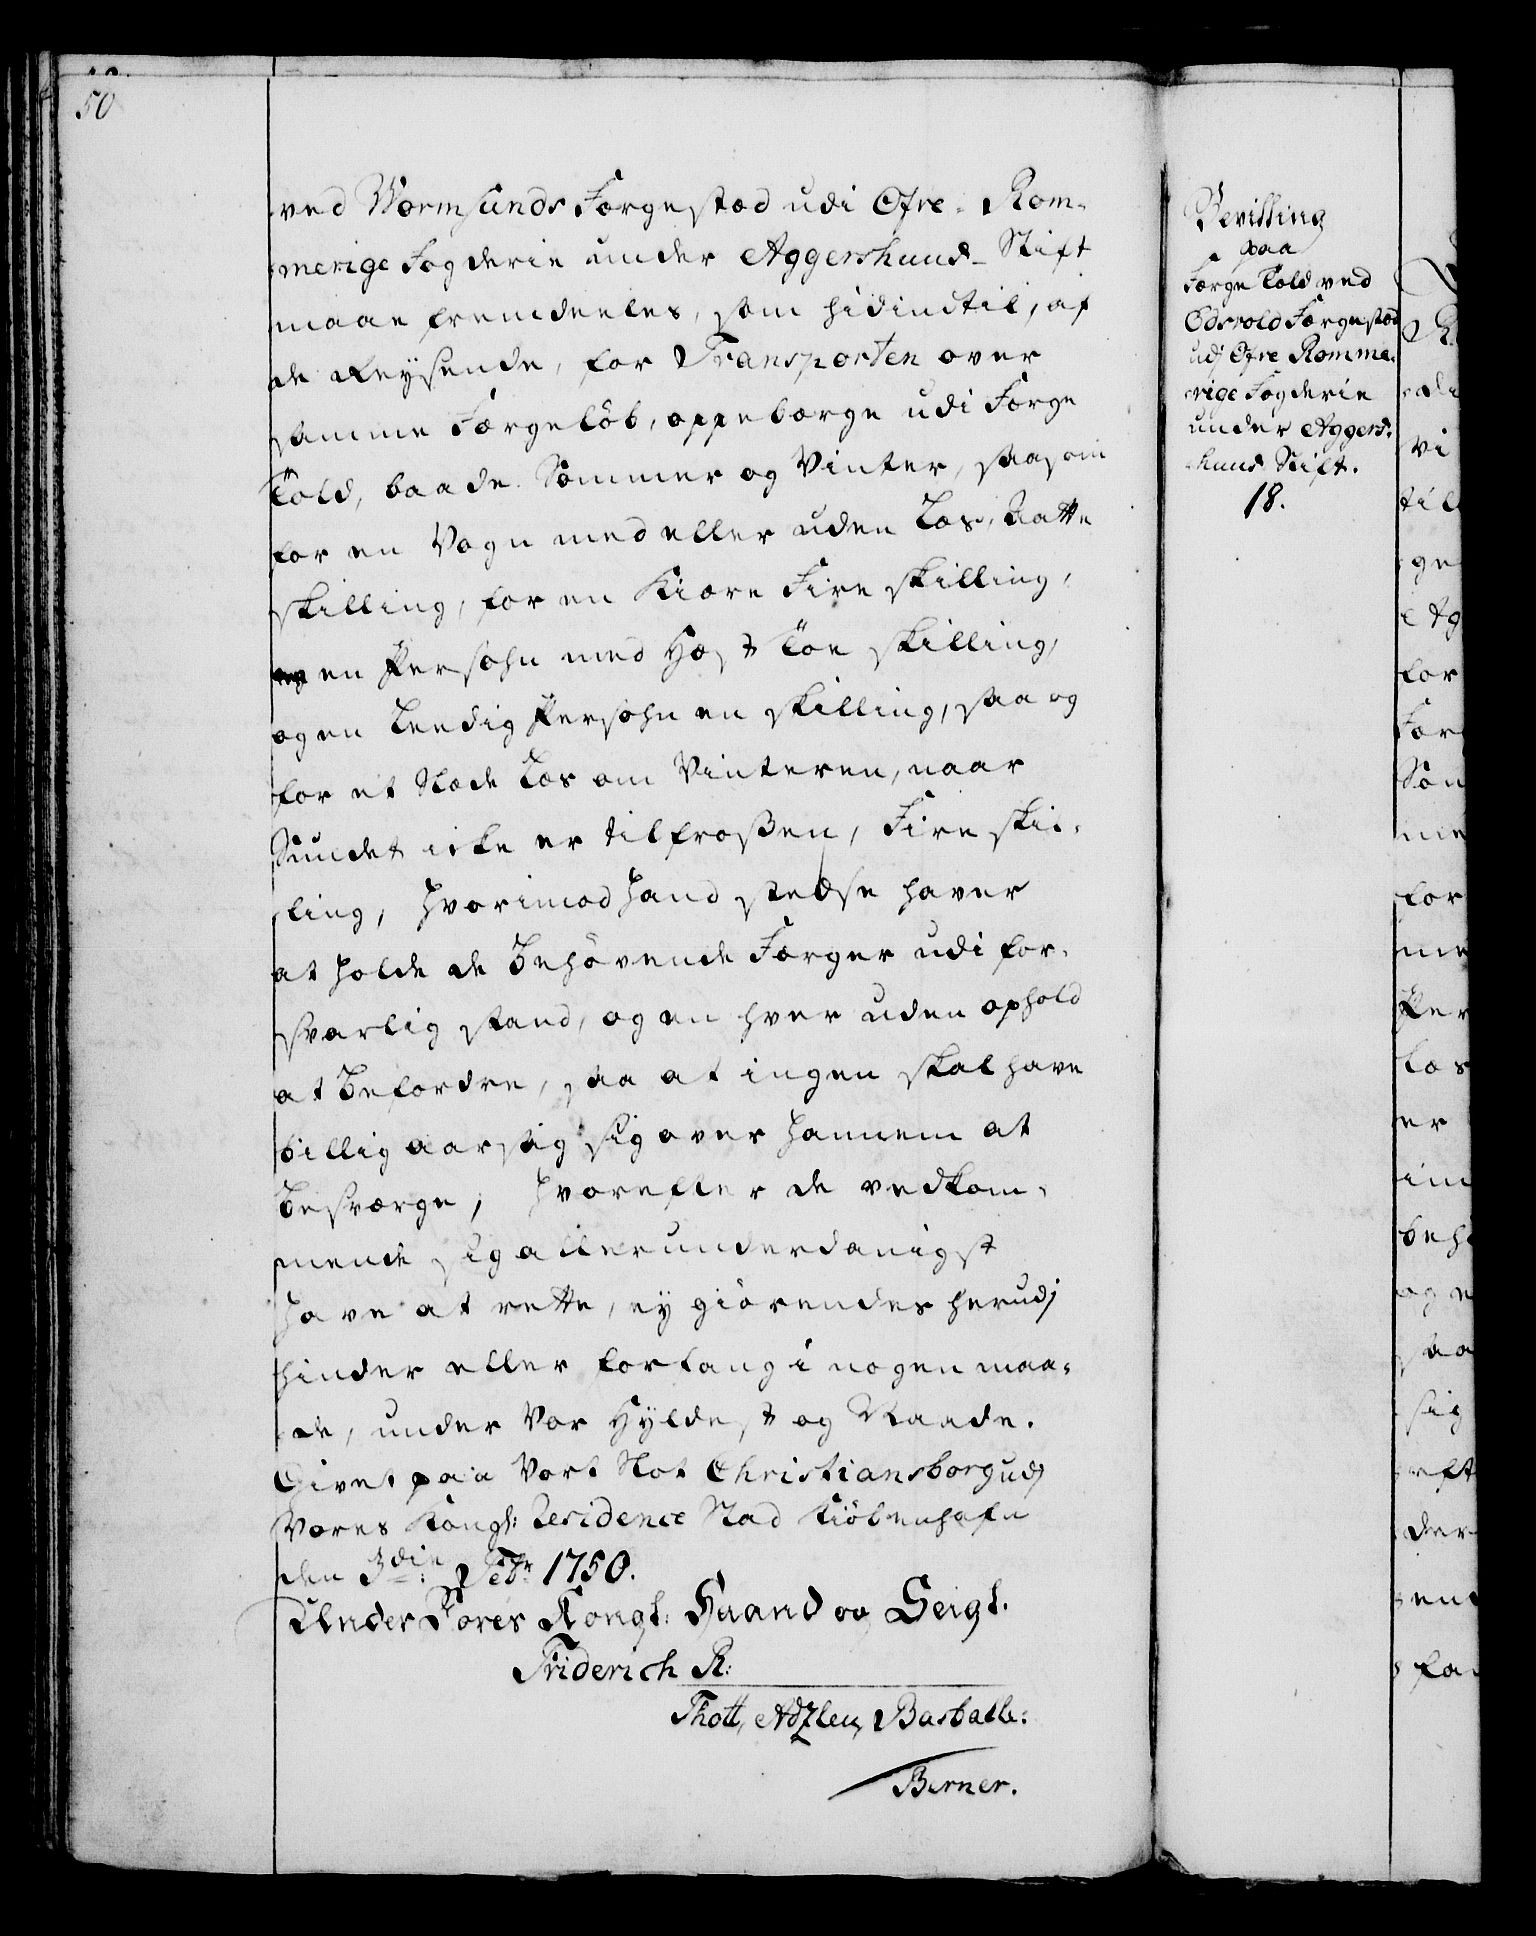 50
ved Wormsunds Færgestæd udi Øfre- Rom-
merige Fogderie under Aggershuus- Stift
maae fremdeeles, som hidindtil, af
de Reysende, for Transporten over
samme Færgelöb, oppebærge udi Færge
Told, baade Sommer og Vinter, saasom
for en Vogn med eller uden Læs, Aatte
skilling, for en Kiære Fire skilling,
en Persohn med Hest Toe skilling,
og en Leedig Persohn en skilling, saa og
for et Slæde Læs om Vinteren, naar
Sundet icke er tilfroßen, Fire skil-
ling, hvorimod hand stedse haver
at holde de Behövende Færger udi for-
svarlig stand, og en hver uden ophold
at Befordre, saa at ingen skal have
billig aarsag sig over hannem at
Besværge, hvorefter de vedkom-
mende sig allerunderdanigst
have at rette, ey giörendes herudj
hinder eller forfang i nogen maa-
de, under Vor Hyldest og Naade.
Givet paa Vort Slot Christiansborg udj
Vores Kongl: Residence Stad Kiöbenhafn
den 3die: Febr: 1750.
Under Vores Kongl: Haand og Seigl.
Friderich R:
Thott, Adzlew, Barballe:
Berner.
Bevilling
paa
Færge Told ved
Edsvold Færgestæd
udj Øfre Romme-
rige Fogderie
under Aggers-
huus Stift.
18.
di
vi
til
ge
Ag
for
Fær
Som
me
for
me
Per
Læs
er
im
behö
og e
saa
sig
eft
der
end
fan